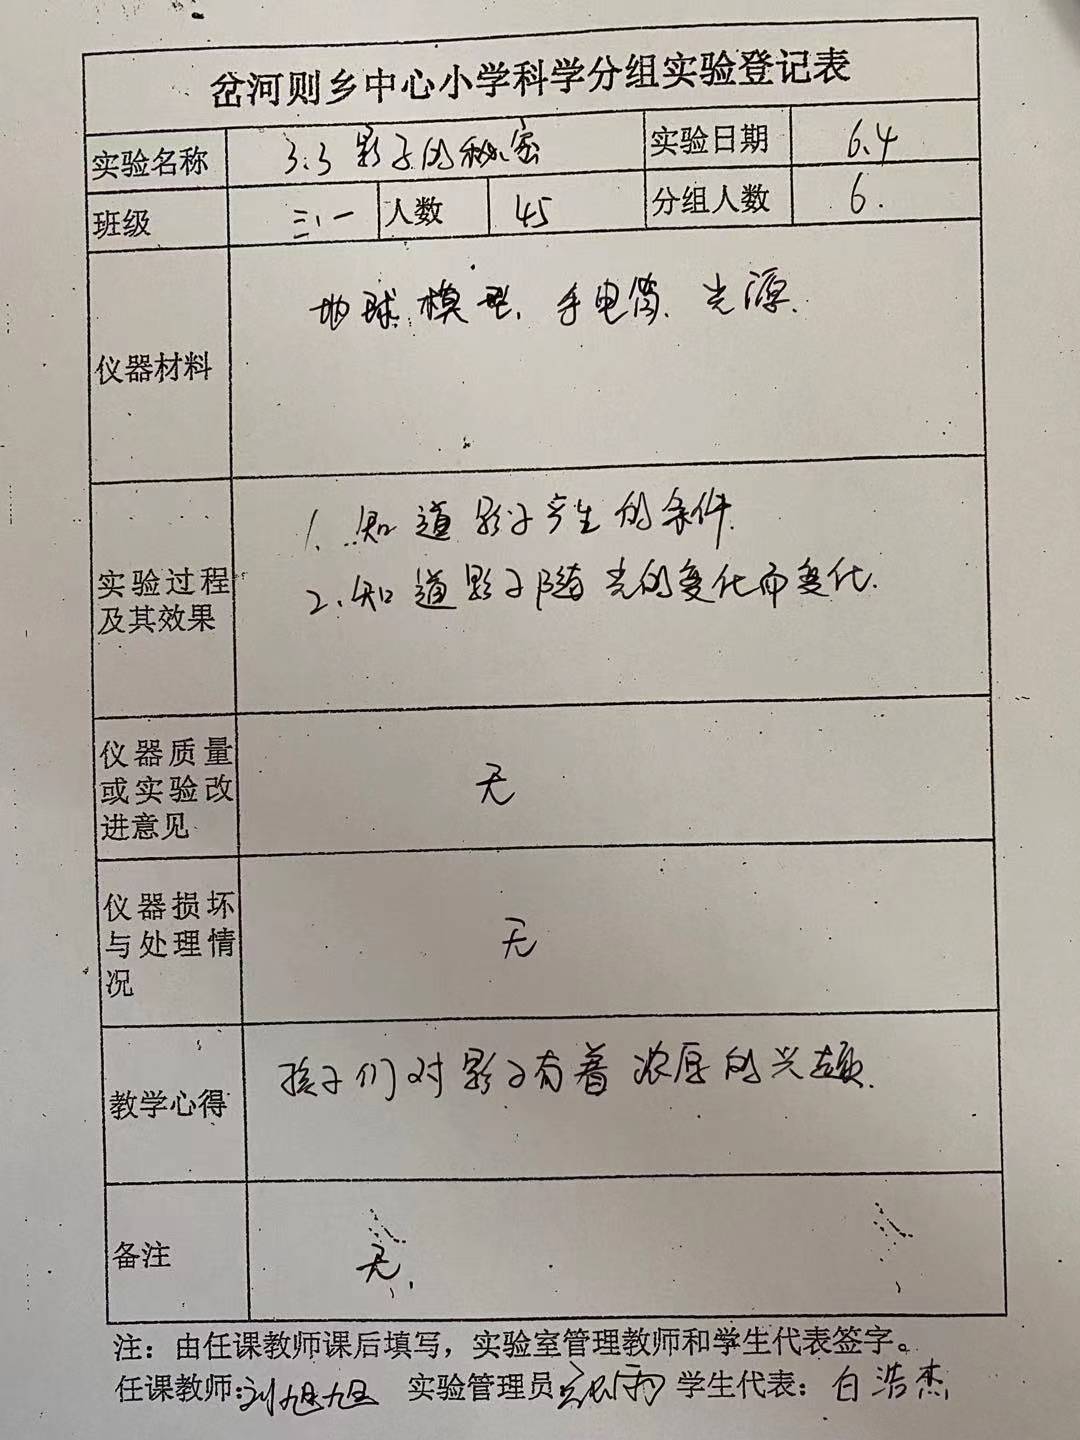 岔河则乡中心小学科学分组实验登记表
实验名称 3.3 影子的秘密 实验日期 6.4
班级 三.一 人数 45 分组人数 6.
仪器材料 地球模型、手电筒、光源.
实验过程及其效果
1. 知道影子产生的条件.
2. 知道影子随光的变化而变化.
仪器质量或实验改进意见 无
仪器损坏与处理情况 无
教学心得 孩子们对影子有着浓厚的兴趣.
备注 无.
注：由任课教师课后填写，实验室管理教师和学生代表签字。
任课教师:刘旭旭 实验管理员 学生代表：白浩杰